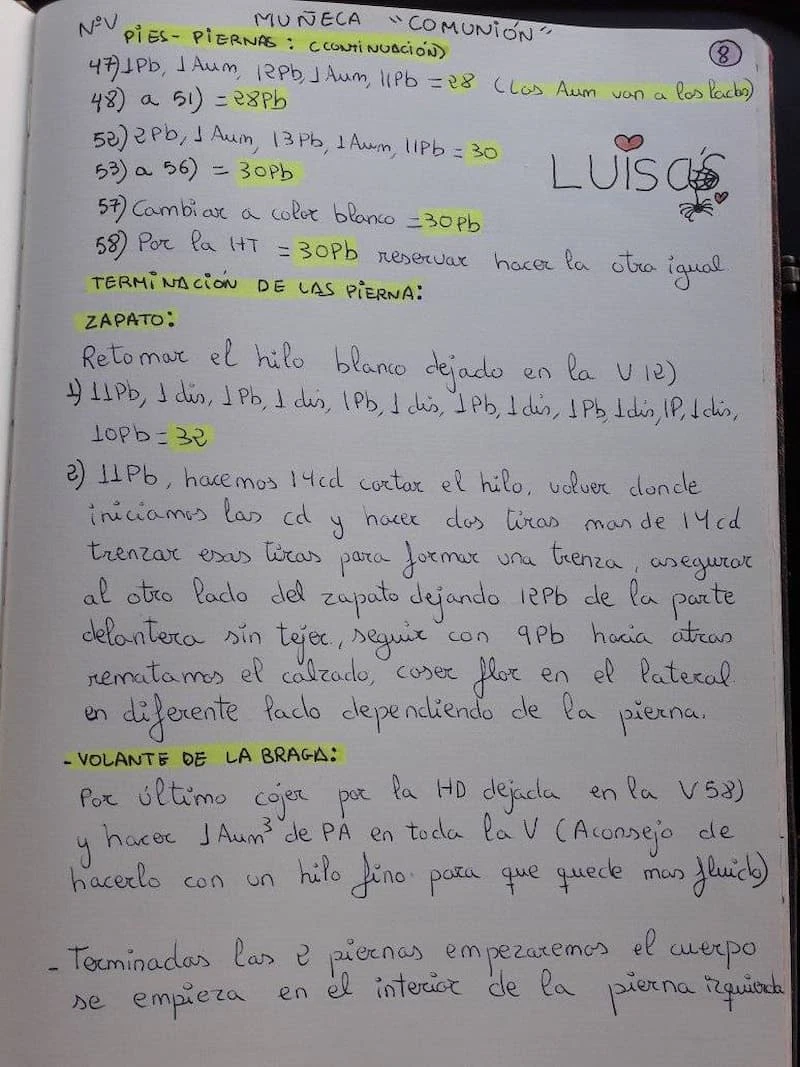 NºV MUÑECA "COMUNIÓN"
PIES - PIERNAS: (CONTINUACIÓN)
8
47) 1Pb, 1Aum, 12Pb, 1Aum, 11Pb = 28 (Los Aum van a los lados)
48) a 51) = 28Pb
52) 2Pb, 1Aum, 13Pb, 1Aum, 11Pb = 30
53) a 56) = 30Pb
LUISA'S
57) Cambiar a color blanco = 30Pb
58) Por la HT = 30Pb reservar hacer la otra igual
TERMINACIÓN DE LAS PIERNA:
ZAPATO:
Retomar el hilo blanco dejado en la V 12)
1) 11Pb, 1 dis, 1Pb, 1 dis, 1Pb, 1 dis, 1Pb, 1 dis, 1Pb, 1dis, 1P, 1dis,
10Pb = 32
2) 11Pb, hacemos 14cd cortar el hilo, volver donde
iniciamos las cd y hacer dos tiras mas de 14cd
trenzar esas tiras para formar una trenza, asegurar
al otro lado del zapato dejando 12Pb de la parte
delantera sin tejer, seguir con 9Pb hacia atras
rematamos el calzado, coser flor en el lateral
en diferente lado dependiendo de la pierna.
- VOLANTE DE LA BRAGA:
Por último cojer por la HD dejada en la V 58)
y hacer 1Aum³ de PA en toda la V (Aconsejo de
hacerlo con un hilo fino para que quede mas fluido)
- Terminadas las 2 piernas empezaremos el cuerpo
se empieza en el interior de la pierna izquierda